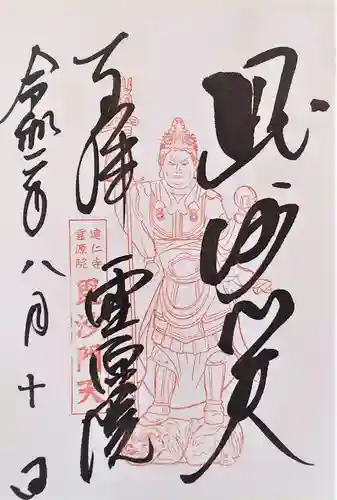 毘沙門天
奉拝
霊源院
令和二年八月十日
建仁寺
霊源院
毘沙門天